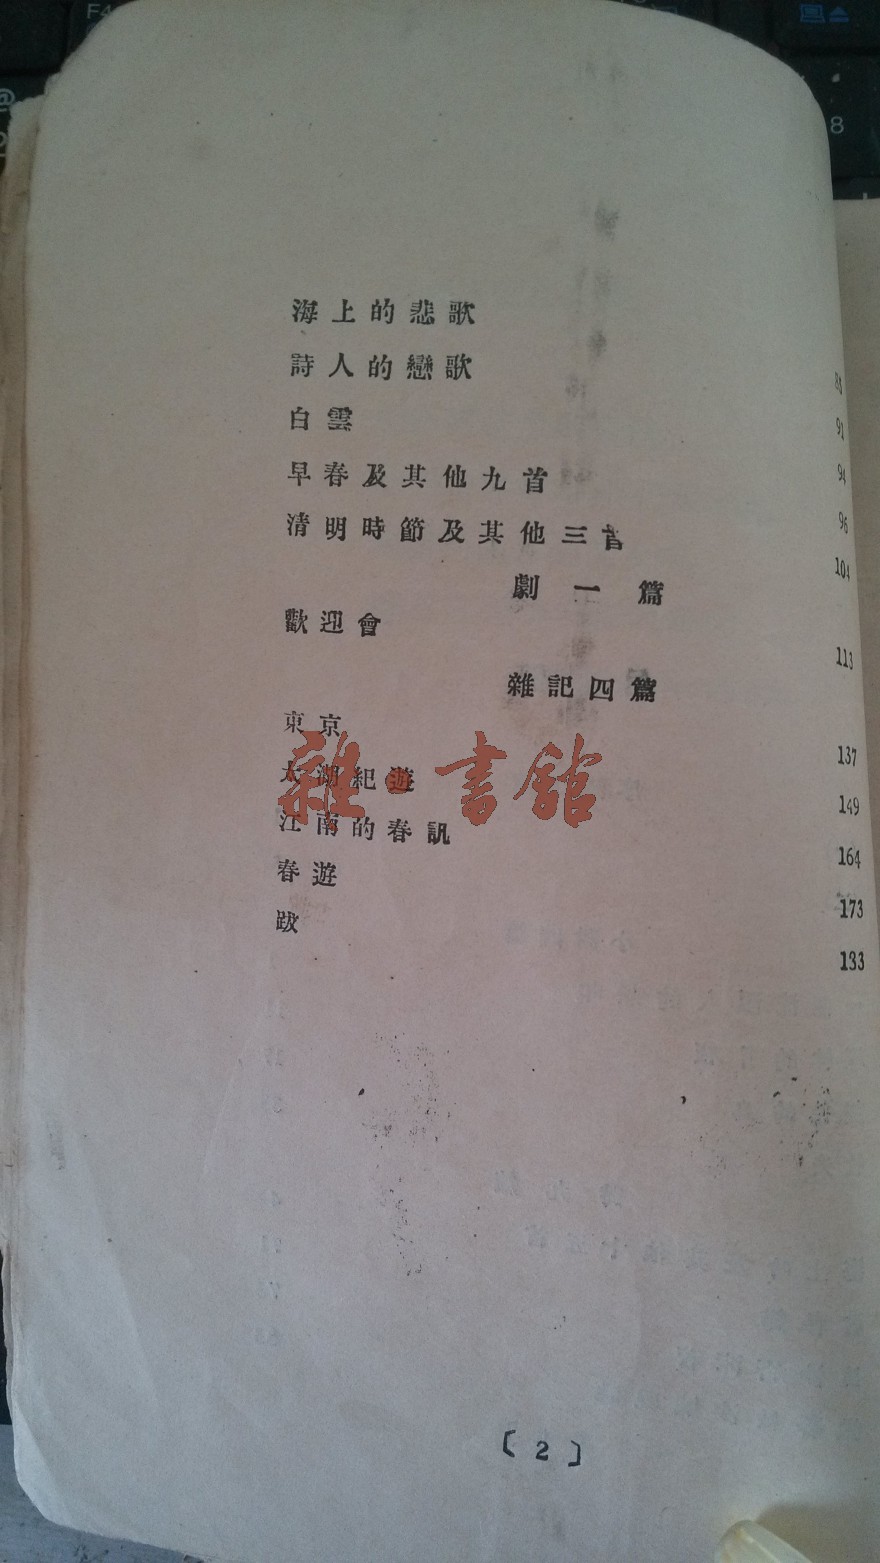 海上的悲歌 88
詩人的戀歌 91
白雲 94
早春及其他九首 96
清明時節及其他三首 104
劇一篇
歡迎會 113
雜記四篇
東京 137
太湖紀遊 149
江南的春訊 164
春遊 173
跋 133
〔2〕
雜·書館
F4
8
@
2